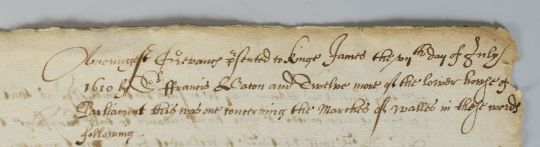 Amongest Grevances p'sented to kinge James the viith day of July
1610 by Sr ffrancis Bacon and Twelve more of the lower howse of
Parliament this was one concerning the Marches of Walles in these words
following